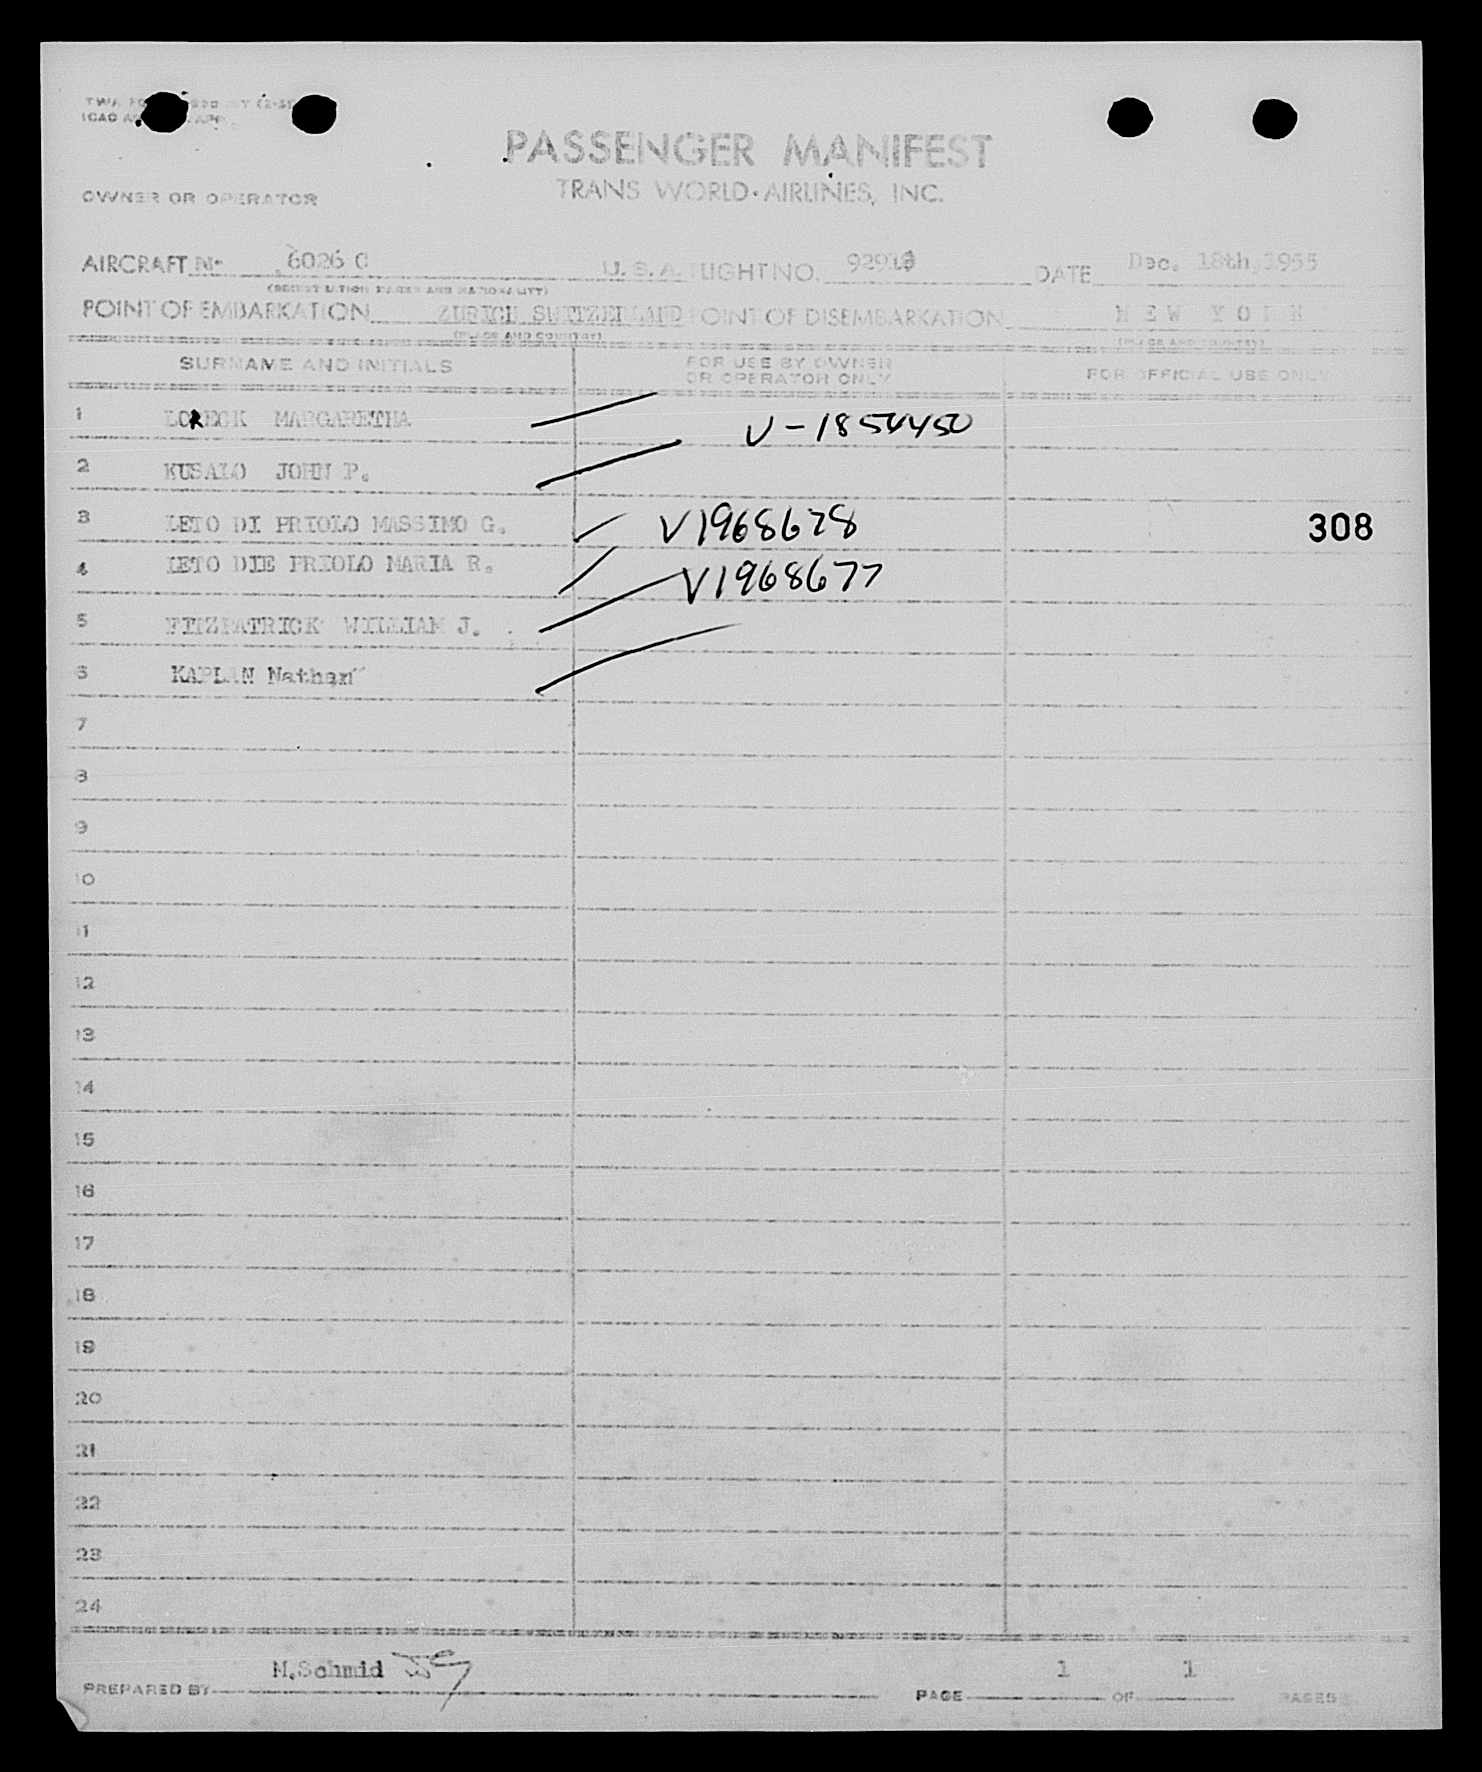 PASSENGER MANIFEST
TRANS WORLD AIRLINES, INC.
OWNER OR OPERATOR
AIRCRAFT No 6026 C U. S. A. FLIGHT NO. DATE Dec. 18th, 1955
(REGISTRATION MARKS AND NATIONALITY)
POINT OF EMBARKATION ZURICH SWITZERLAND POINT OF DISEMBARKATION NEW YORK
(PLACE AND COUNTRY) (PLACE AND COUNTRY)
SURNAME AND INITIALS FOR USE BY OWNER OR OPERATOR ONLY FOR OFFICIAL USE ONLY
1 LORECK MARGARETHA V-1854450
2 KUSALO JOHN P.
3 LETO DI PRIOLO MASSIMO G. V1968678 308
4 LETO DIE PRIOLO MARIA R. V1968677
5 FITZPATRICK WILLIAM J.
6 KAPLAN Nathan
7
8
9
10
11
12
13
14
15
16
17
18
19
20
21
22
23
24
PREPARED BY M.Schmid PAGE 1 OF 1 PAGES